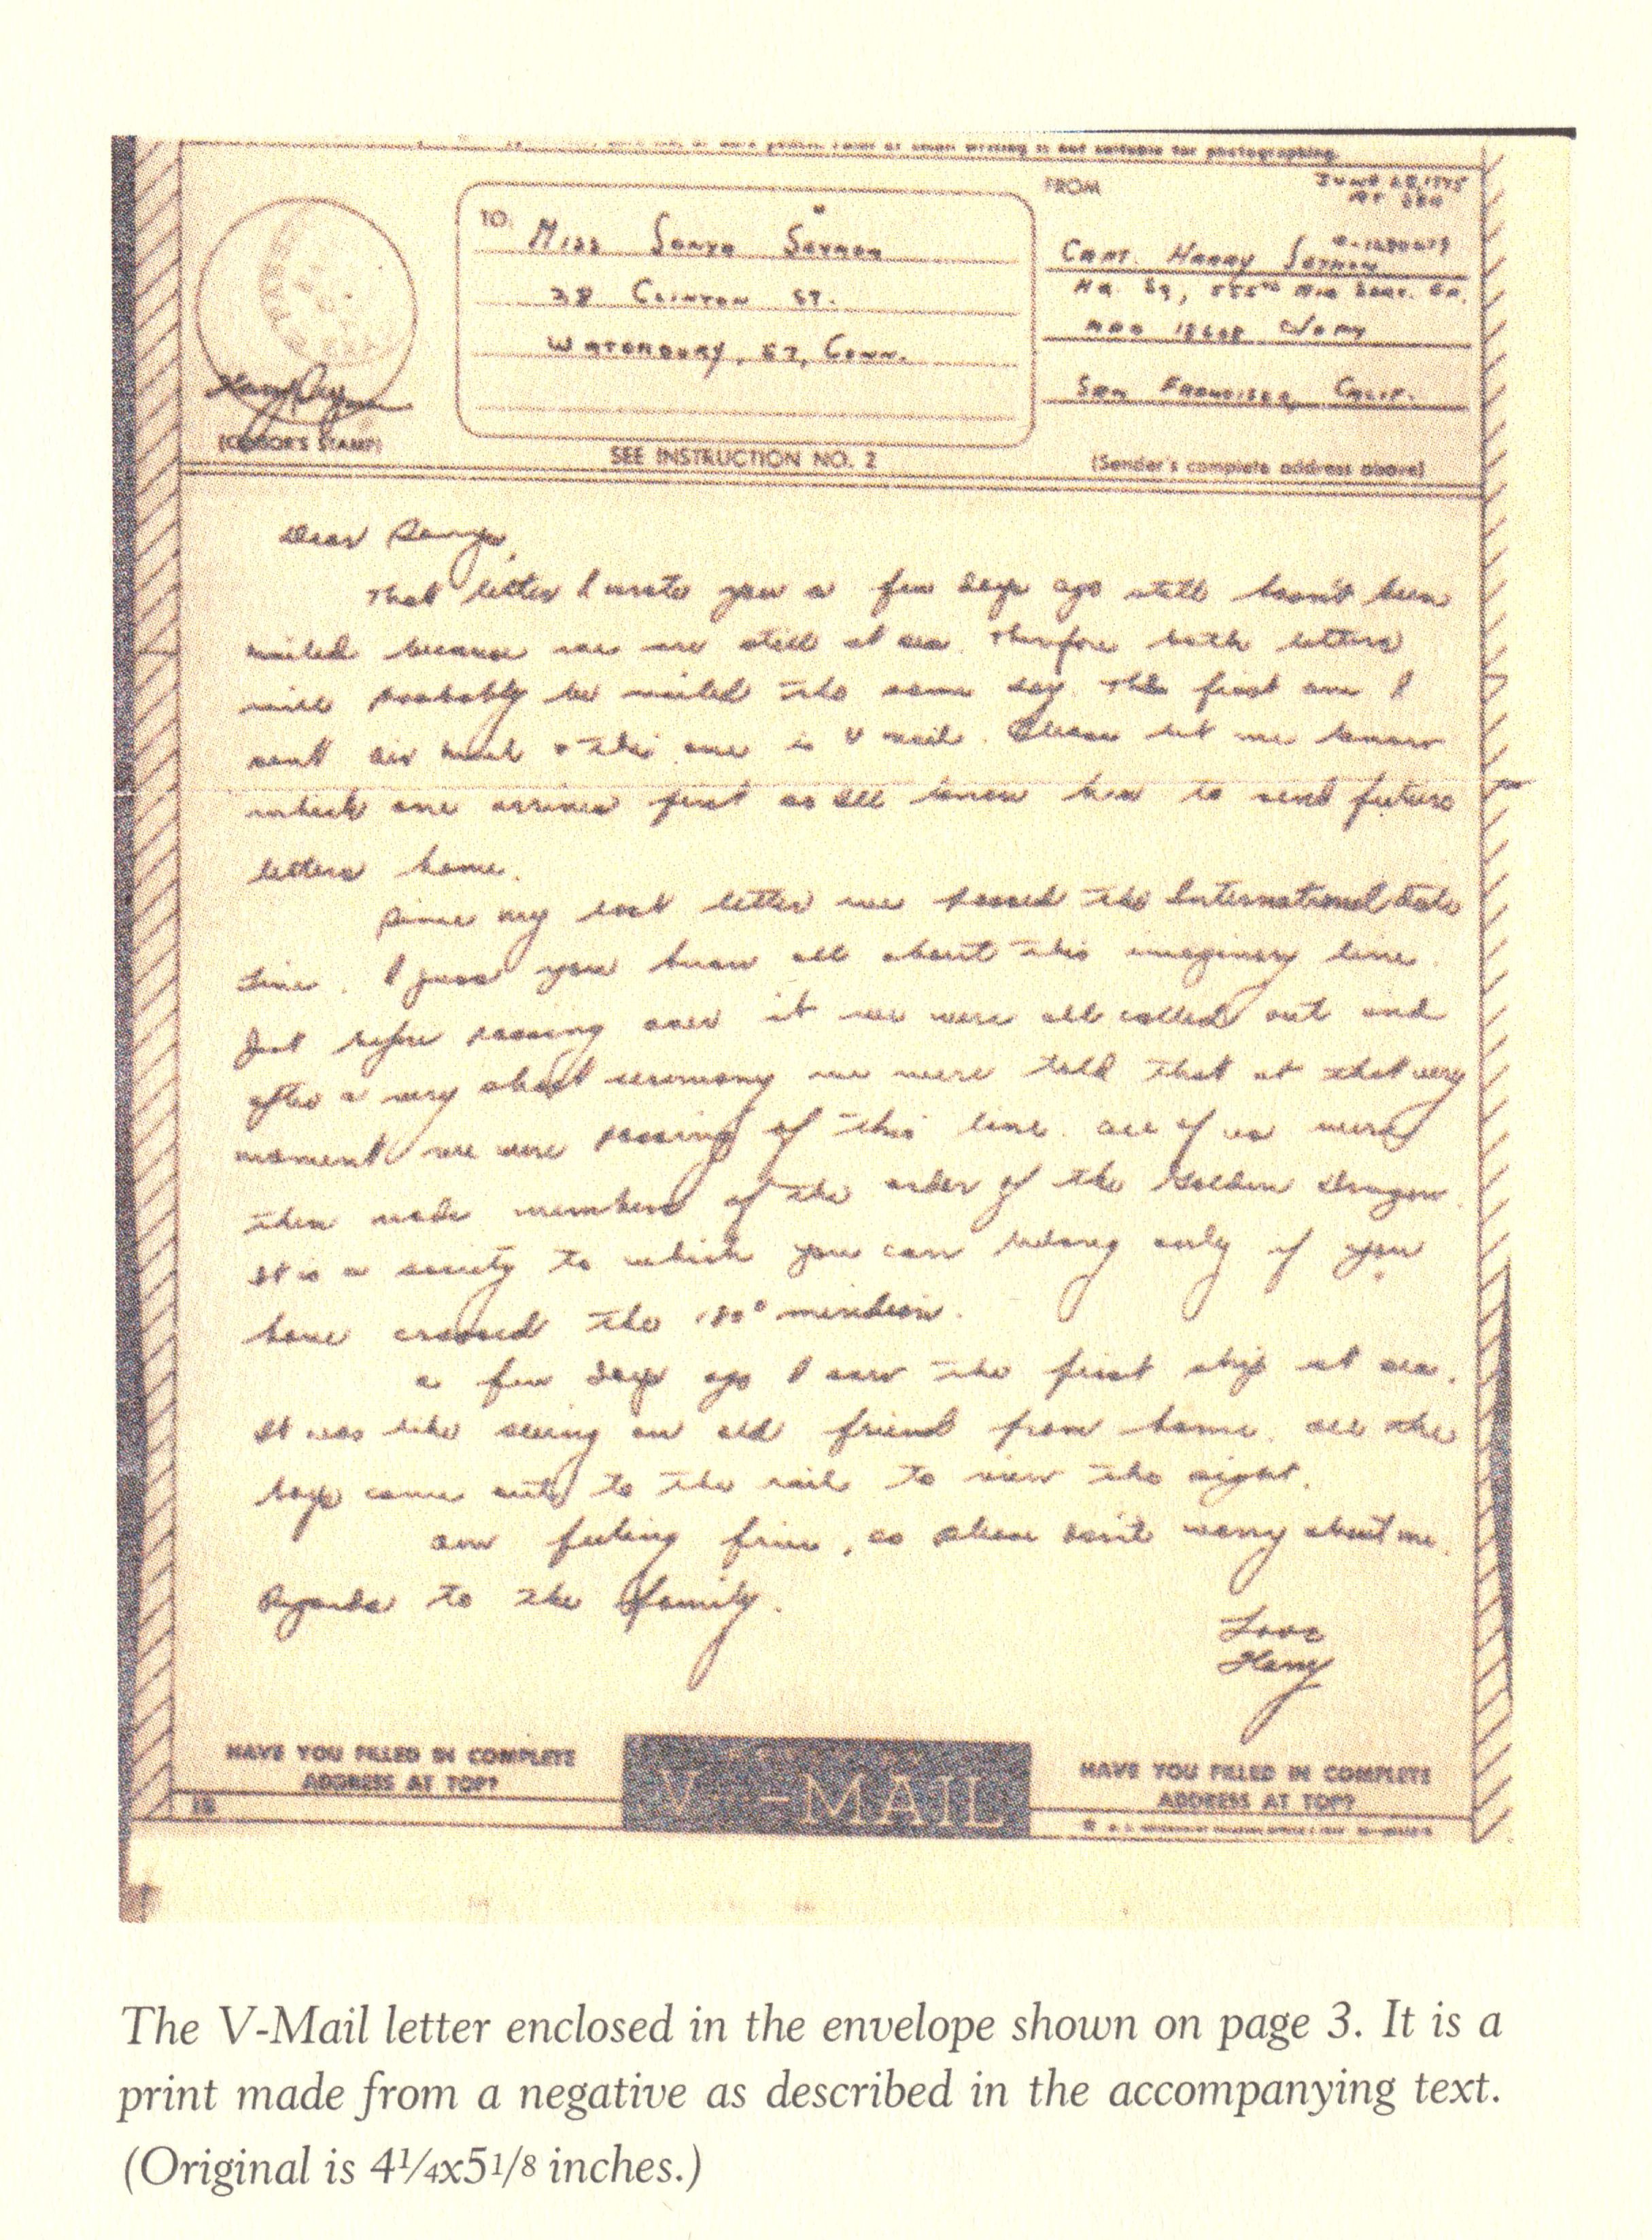 or small writing is not suitable for photographing.
FROM
JUNE 28, 1945
AT SEA
TO:
MISS SONYA SEYMON
CAPT. HARRY SEYMON
38 CLINTON ST.
HQ. SQ, 555TH AIR SERV. GR.
WATERBURY, 67, CONN.
APO
SAN FRANCISCO, CALIF.
(CENSOR'S STAMP)
SEE INSTRUCTION NO. 2
(Sender's complete address above)
Dear Sonya,
That letter I wrote you a few days ago still hasn't been
mailed because we are still at sea. Therefore both letters
will probably be mailed the same day. The first one I
sent air mail & this one is V mail. Please let me know
which one arrives first so I'll know how to send future
letters home.
Since my last letter we passed the International Date
Line. I guess you know all about this imaginary line.
Just before passing over it we were all called out and
after a very short ceremony we were told that at that very
moment we were passing of this line. All of us were
then made members of the order of the Golden Dragon.
It is a society to which you can belong only if you
have crossed the 180° meridian.
A few days ago I saw the first ship at sea.
It was like seeing an old friend from home. All the
boys came out to the rail to view the sight.
Am feeling fine, so please don't worry about me.
Regards to the family.
Love
Harry
HAVE YOU FILLED IN COMPLETE
ADDRESS AT TOP?
V - - MAIL
HAVE YOU FILLED IN COMPLETE
ADDRESS AT TOP?
The V-Mail letter enclosed in the envelope shown on page 3. It is a
print made from a negative as described in the accompanying text.
(Original is 4¼x51/8 inches.)